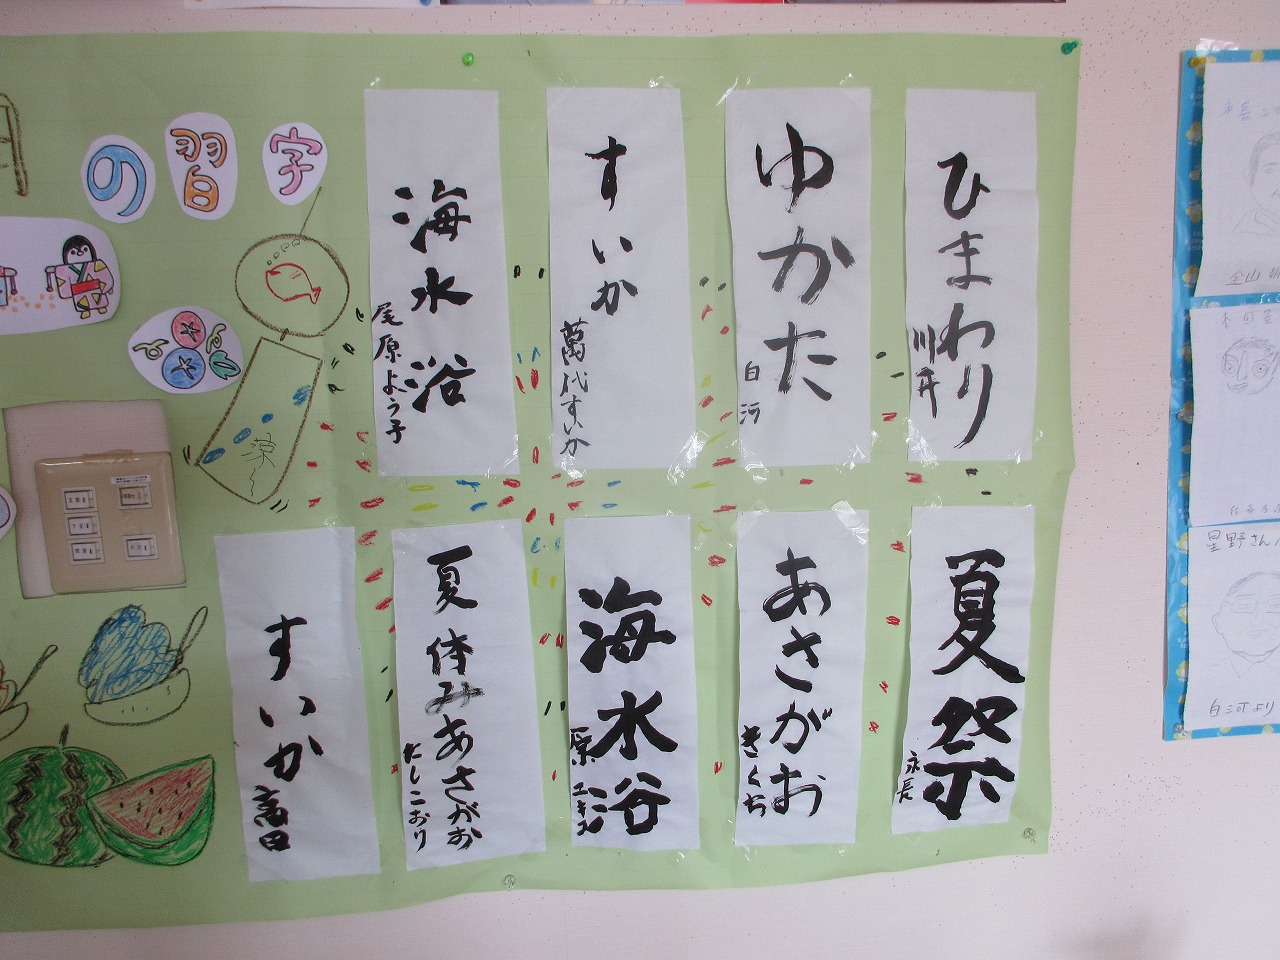 月の習字
ひまわり
川井
ゆかた
白河
すいか
萬代すいか
海水浴
尾原よう子
夏祭
永長
あさがお
きくち
海水浴
原 ユキヱ
夏休みあさがお
たしこおり
すいか
高田
星野さん
白河より